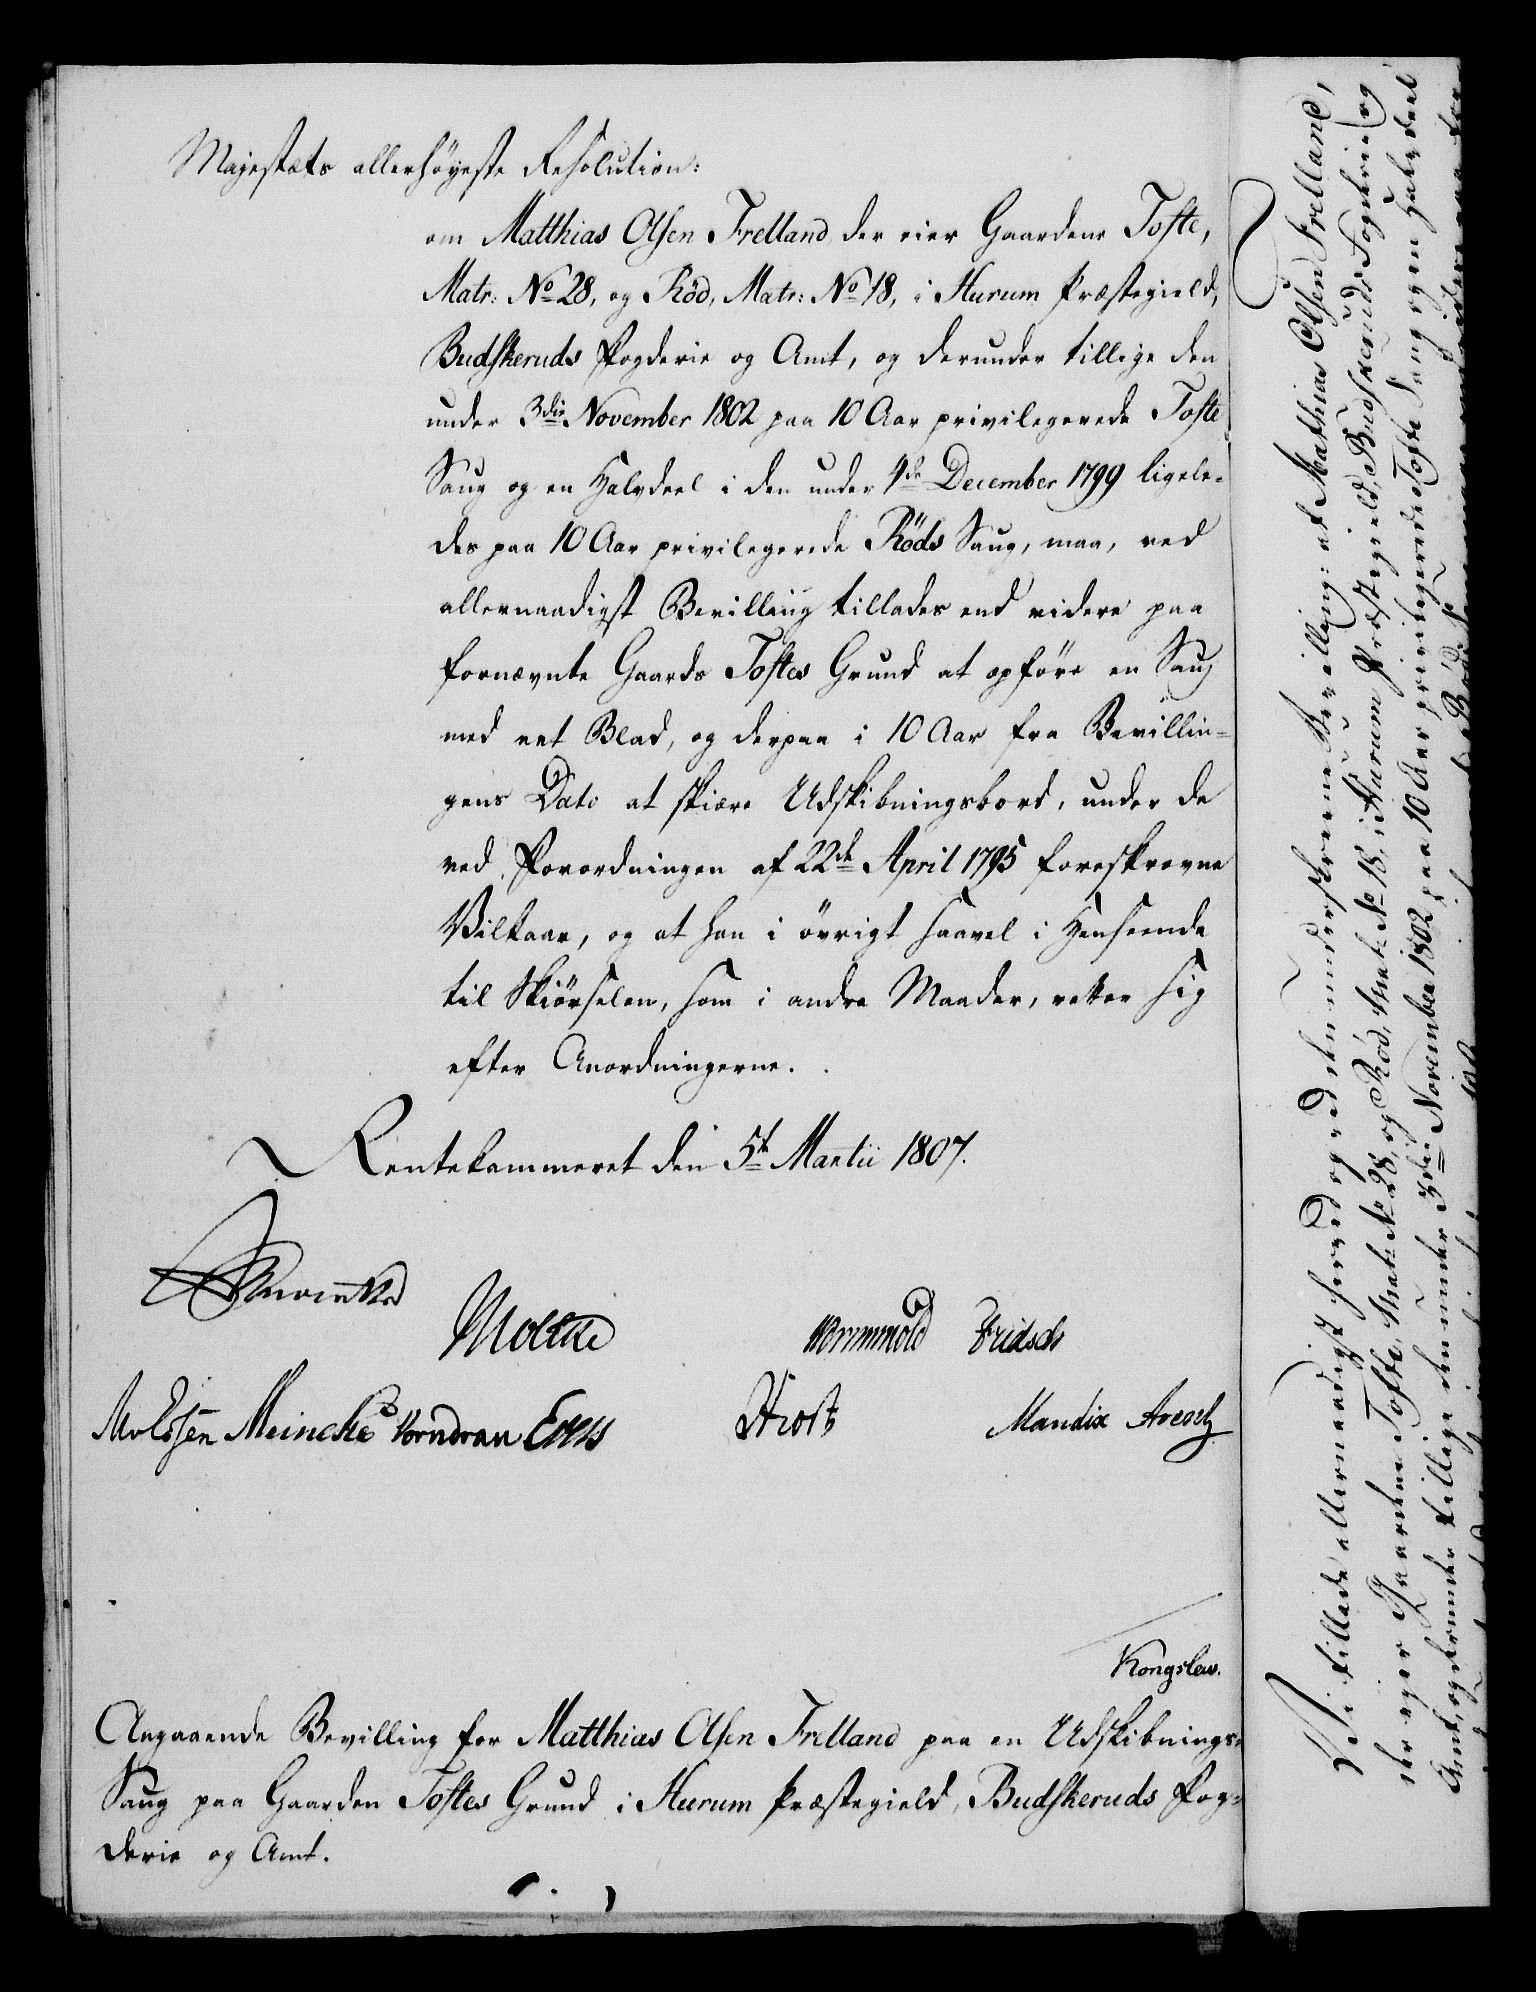 Majestæts allerhöyeste Resolution:
om Matthias Olsen Frelland, der eier Gaardene Tofte,
Matr: No 28, og Röd, Matr: No 18, i Hurum Præstegield,
Budskeruds Fogderie og Amt, og derunder tillige den
under 3die November 1802 paa 10 Aar privilegerede Tofte
Saug og en Halvdeel i den under 4de December 1799 ligele-
des paa 10 Aar privilegerede Röds Saug, maa, ved
allernaadigst Bevilling tillades end videre paa
fornævnte Gaards Toftes Grund at opföre en Saug
med eet Blad, og derpaa i 10 Aar fra Bevillin-
gens Dato at skiære Udskibningsbord, under de
ved Forordningen af 22de April 1795 foreskrevne
Vilkaar, og at han i övrigt saavel i Henseende
til Skiörselen, som i andre Maader, retter sig
efter Anordningerne.
Rentekammeret den 5t Martii 1807.
Moltke Wormskiold Fridsch
Meincke Vorndran Evers Hrost Mandix
Kongslew.
Angaaende Bevilling for Matthias Olsen Frelland paa en Udskibnings-
Saug paa Gaarden Toftes Grund i Hurum Præstegield, Budskeruds Fog-
derie og Amt.
Vi tillade allernaadigst herved og ved den underskrevne Bevilling: at Mathias Olsen Frelland,
der eyer Gaardene Tofte, Mat: No 28, og Röd, Mat: No 18, i Hurum Præstegield, Budskeruds Fogderie og
Amt, og derunder tillige den under 3die November 1802 paa 10 Aar privilegerede Tofte Saug og en Halvdeel